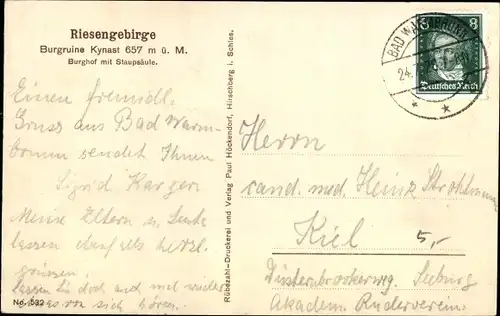 Riesengebirge
Burgruine Kynast 657 m ü. M.
Burghof mit Staupsäule.
Einen freundl.
Gruss aus Bad Warm-
brunn sendet Ihnen
Sigrid Karger
Meine Eltern u. Leute
lassen ebenfalls herzl.
grüssen.
lassen Sie doch auch mal wieder
etwas von sich hören.
No. 532
Rübezahl-Druckerei und Verlag Paul Höckendorf, Hirschberg i. Schles.
8 8
Deutsches Reich
BAD WARMBRUNN
24.
* *
Herrn
cand. med. Heinz Strohtmann
Kiel
5,-
Düsternbrookerweg. Seeburg
Akadem. Ruderverein